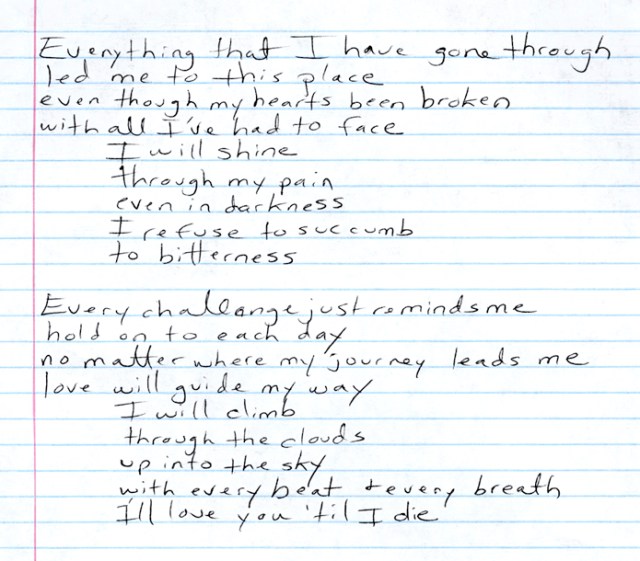 Everything that I have gone through
led me to this place
even though my hearts been broken
with all I've had to face
I will shine
through my pain
even in darkness
I refuse to succumb
to bitterness
Every challange just reminds me
hold on to each day
no matter where my journey leads me
love will guide my way
I will climb
through the clouds
up into the sky
with every beat + every breath
I'll love you 'til I die